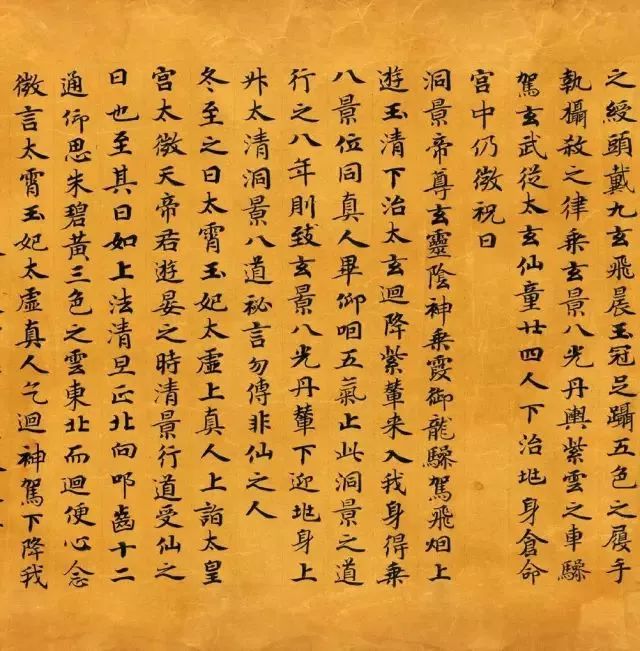 之綬頭戴九玄飛晨玉冠足躡五色之履手
執攝殺之律乘玄景八光丹輿紫雲之車驂
駕玄武從太玄仙童廿四人下治兆身倉命
宮中仍微祝曰
洞景帝尊玄靈陰神乘霞御龍驂駕飛烟上
遊玉清下治太玄迴降紫輦来入我身得乘
八景位同真人畢仰咽五氣止此洞景之道
行之八年則致玄景八光丹輦下迎兆身上
升太清洞景八道祕言勿傳非仙之人
冬至之日太霄玉妃太虛上真人上詣太皇
宮太微天帝君遊晏之時清景行道受仙之
日也至其日如上法清旦正北向叩齒十二
通仰思朱碧黃三色之雲東北而迴便心念
微言太霄玉妃太虛真人乞迴神駕下降我